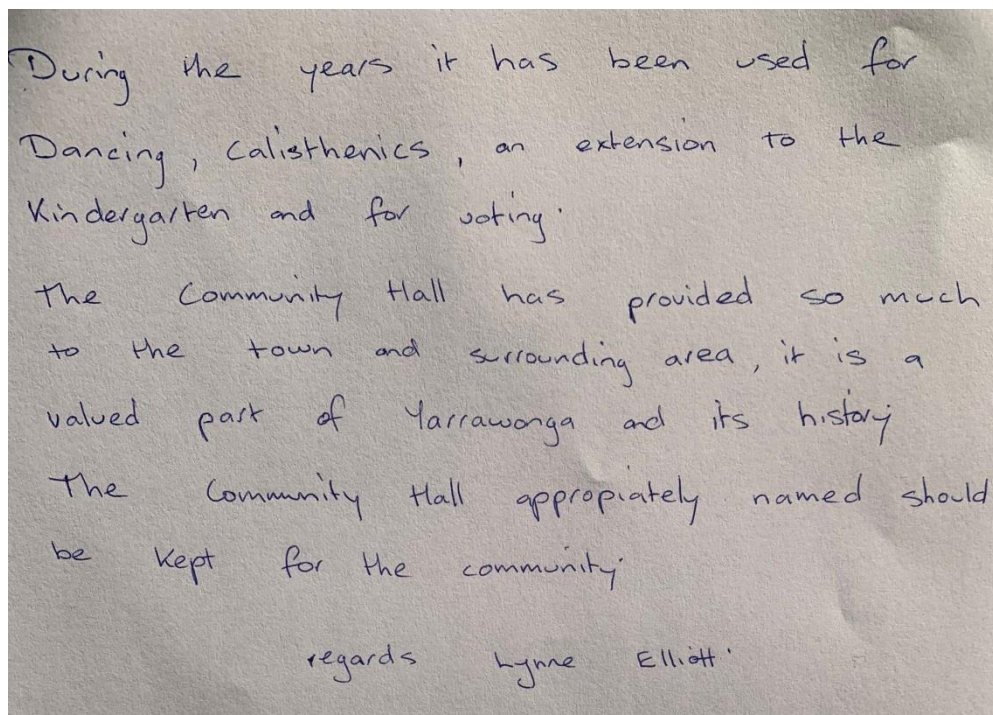 During the years it has been used for
Dancing, Calisthenics, an extension to the
Kindergarten and for voting.
The Community Hall has provided so much
to the town and surrounding area, it is a
valued part of Yarrawonga and its history
The Community Hall appropiately named should
be kept for the community.
regards Lynne Elliott.